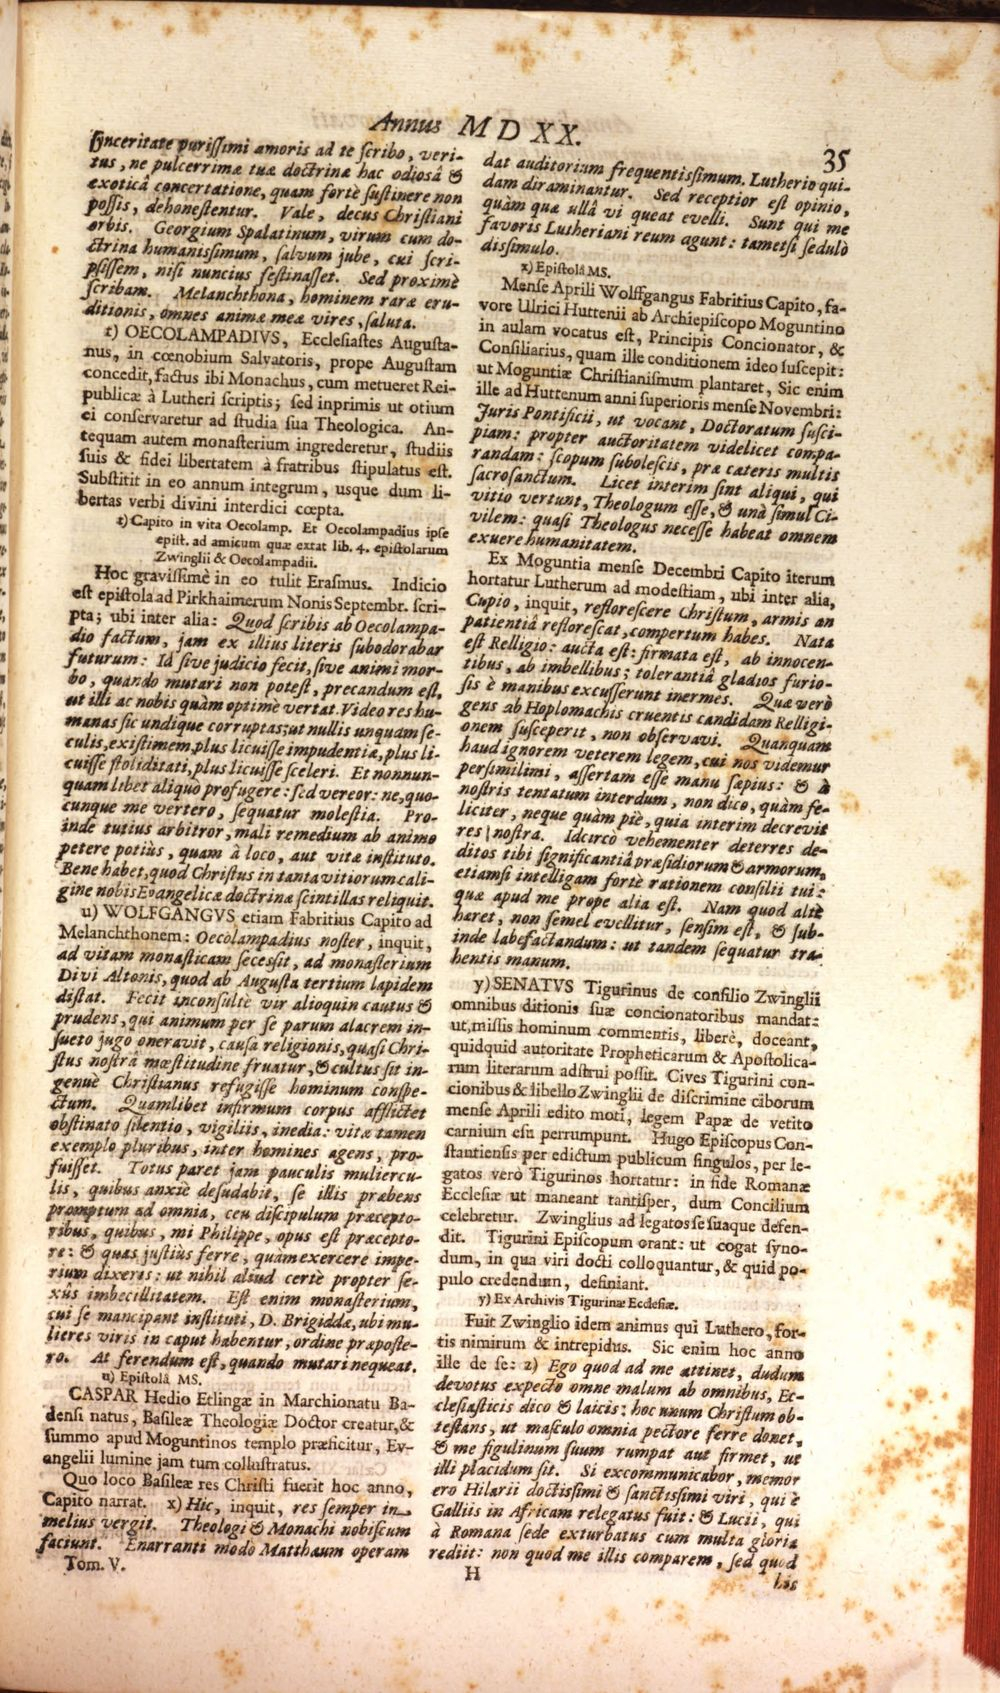 Annus MDXX.
35
ſynceritate puriſſimi amoris ad te ſcribo, veri-
tus, ne pulcerrimæ tuæ doctrinæ hac odiosâ &
exoticâ concertatione, quam fortè ſuſtinere non
poſſis, dehoneſtentur. Vale, decus Chriſtiani
orbis. Georgium Spalatinum, virum cum do-
ctrina humaniſſimum, ſalvum jube, cui ſcri-
pſiſſem, niſi nuncius feſtinaſſet. Sed proximè
ſcribam. Melanchthona, hominem raræ eru-
ditionis, omnes animæ meæ vires, ſaluta.
t) OECOLAMPADIVS, Eccleſiaſtes Auguſta-
nus, in cœnobium Salvatoris, prope Auguſtam
concedit, factus ibi Monachus, cum metueret Rei-
publicæ à Lutheri ſcriptis; ſed inprimis ut otium
ei conſervaretur ad ſtudia ſua Theologica. An-
tequam autem monaſterium ingrederetur, ſtudiis
ſuis & fidei libertatem à fratribus ſtipulatus eſt.
Subſtitit in eo annum integrum, usque dum li-
bertas verbi divini interdici cœpta.
t) Capito in vita Oecolamp. Et Oecolampadius ipſe
epiſt. ad amicum quæ extat lib. 4. epiſtolarum
Zwinglii & Oecolampadii.
Hoc graviſſimè in eo tulit Eraſmus. Indicio
eſt epiſtola ad Pirkhaimerum Nonis Septembr. ſcri-
pta; ubi inter alia: Quod ſcribis ab Oecolampa-
dio factum, jam ex illius literis ſubodorabar
futurum: Id ſive judicio fecit, ſive animi mor-
bo, quando mutari non poteſt, precandum eſt,
ut illi ac nobis quàm optimè vertat. Video res hu-
manas ſic undique corruptas; ut nullis unquam ſe-
culis, exiſtimem, plus licuiſſe impudentiæ, plus li-
cuiſſe ſtoliditati, plus licuiſſe ſceleri. Et nonnun-
quam libet aliquò profugere: ſed vereor: ne, quo-
cunque me vertero, ſequatur moleſtia. Pro-
inde tutius arbitror, mali remedium ab animo
petere potiùs, quam à loco, aut vitæ inſtituto.
Bene habet, quod Chriſtus in tanta vitiorum cali-
gine nobis Evangelicæ doctrinæ ſcintillas reliquit.
u) WOLFGANGVS etiam Fabritius Capito ad
Melanchthonem: Oecolampadius noſter, inquit,
ad vitam monaſticam ſeceſſit, ad monaſterium
Divi Altonis, quod ab Auguſta tertium lapidem
diſtat. Fecit inconſultè vir alioquin cautus &
prudens, qui animum per ſe parum alacrem in-
ſueto jugo oneravit, causa religionis, quaſi Chri-
ſtus noſtrâ mœſtitudine fruatur, & cultus ſit in-
genuè Chriſtianus refugiſſe hominum conſpe-
ctum. Quamlibet infirmum corpus afflictet
obſtinato ſilentio, vigiliis, inedia: vitæ tamen
exemplo pluribus, inter homines agens, pro-
fuiſſet. Totus paret jam pauculis muliercu-
lis, quibus anxiè deſudabit, ſe illis præbens
promptum ad omnia, ceu diſcipulum præcepto-
ribus, quibus, mi Philippe, opus eſt præcepto-
re: & quas juſtius ferre, quàm exercere impe-
rium dixeris: ut nihil aliud certè propter ſe-
xûs imbecillitatem. Eſt enim monaſterium,
cui ſe mancipant inſtituti, D. Brigiddæ, ubi mu-
lieres viris in caput habentur, ordine præpoſte-
ro. At ferendum eſt, quando mutari nequeat.
u) Epiſtolâ MS.
CASPAR Hedio Etlingæ in Marchionatu Ba-
denſi natus, Baſileæ Theologiæ Doctor creatur, &
ſummo apud Moguntinos templo præficitur, Ev-
angelii lumine jam tum colluſtratus.
Quo loco Baſileæ res Chriſti fuerit hoc anno,
Capito narrat. x) Hic, inquit, res ſemper in
melius vergit. Theologi & Monachi nobiſcum
faciunt. Enarranti modo Matthæum operam
Tom. V.
dat auditorium frequentiſſimum. Lutherio qui-
dam diraminantur. Sed receptior eſt opinio,
quàm quæ ullâ vi queat evelli. Sunt qui me
favoris Lutheriani reum agunt: tametſi ſedulò
diſſimulo.
x) Epiſtolâ MS.
Menſe Aprili Wolffgangus Fabritius Capito, fa-
vore Ulrici Huttenii ab Archiepiſcopo Moguntino
in aulam vocatus eſt, Principis Concionator, &
Conſiliarius, quam ille conditionem ideo ſuſcepit:
ut Moguntiæ Chriſtianiſmum plantaret, Sic enim
ille ad Huttenum anni ſuperioris menſe Novembri:
Juris Pontificii, ut vocant, Doctoratum ſuſci-
piam: propter auctoritatem videlicet compa-
randam: ſcopum ſuboleſcis, præ cæteris multis
ſacroſanctum. Licet interim ſint aliqui, qui
vitio vertunt, Theologum eſſe, & unà ſimul Ci-
vilem: quaſi Theologus neceſſe habeat omnem
exuere humanitatem.
Ex Moguntia menſe Decembri Capito iterum
hortatur Lutherum ad modeſtiam, ubi inter alia,
Cupio, inquit, refloreſcere Chriſtum, armis an
patientiâ refloreſcat, compertum habes. Nata
eſt Relligio: aucta eſt: firmata eſt, ab innocen-
tibus, ab imbellibus; tolerantiâ gladios furio-
ſis è manibus excuſſerunt inermes. Quæ verò
gens ab Hoplomachis cruentis candidam Relligi-
onem ſuſceperit, non obſervavi. Quanquam
haud ignorem veterem legem, cui nos videmur
perſimilimi, aſſertam eſſe manu ſæpius: & à
noſtris tentatum interdum, non dico, quàm fe-
liciter, neque quàm piè, quia interim decrevit
res noſtra. Idcircò vehementer deterres de-
ditos tibi ſignificantiâ præſidiorum & armorum,
etiamſi intelligam fortè rationem conſilii tui:
quæ apud me prope alia eſt. Nam quod altè
hæret, non ſemel evellitur, ſenſim eſt, & ſub-
inde labefactandum: ut tandem ſequatur tra-
hentis manum.
y) SENATVS Tigurinus de conſilio Zwinglii
omnibus ditionis ſuæ concionatoribus mandat:
ut, miſſis hominum commentis, liberè, doceant,
quidquid autoritate Propheticarum & Apoſtolica-
rum literarum adſtrui poſſit. Cives Tigurini con-
cionibus & libello Zwinglii de diſcrimine ciborum
menſe Aprili edito moti, legem Papæ de vetito
carnium eſu perrumpunt. Hugo Epiſcopus Con-
ſtantienſis per edictum publicum ſingulos, per le-
gatos verò Tigurinos hortatur: in fide Romanæ
Eccleſiæ ut maneant tantiſper, dum Concilium
celebretur. Zwinglius ad legatos ſe ſuaque defen-
dit. Tigurini Epiſcopum orant: ut cogat ſyno-
dum, in qua viri docti colloquantur, & quid po-
pulo credendum, definiant.
y) Ex Archivis Tigurinæ Eccleſiæ.
Fuit Zwinglio idem animus qui Luthero, for-
tis nimirum & intrepidus. Sic enim hoc anno
ille de ſe: z) Ego quod ad me attinet, dudum
devotus expecto omne malum ab omnibus, Ec-
cleſiaſticis dico & laicis: hoc unum Chriſtum ob-
teſtans, ut maſculo omnia pectore ferre donet,
& me figulinum ſuum rumpat aut firmet, ut
illi placidum ſit. Si excommunicabor, memor
ero Hilarii doctiſſimi & ſanctiſſimi viri, qui è
Galliis in Africam relegatus fuit: & Lucii, qui
à Romana ſede exturbatus cum multa gloria
rediit: non quod me illis comparem, ſed quod
H
his